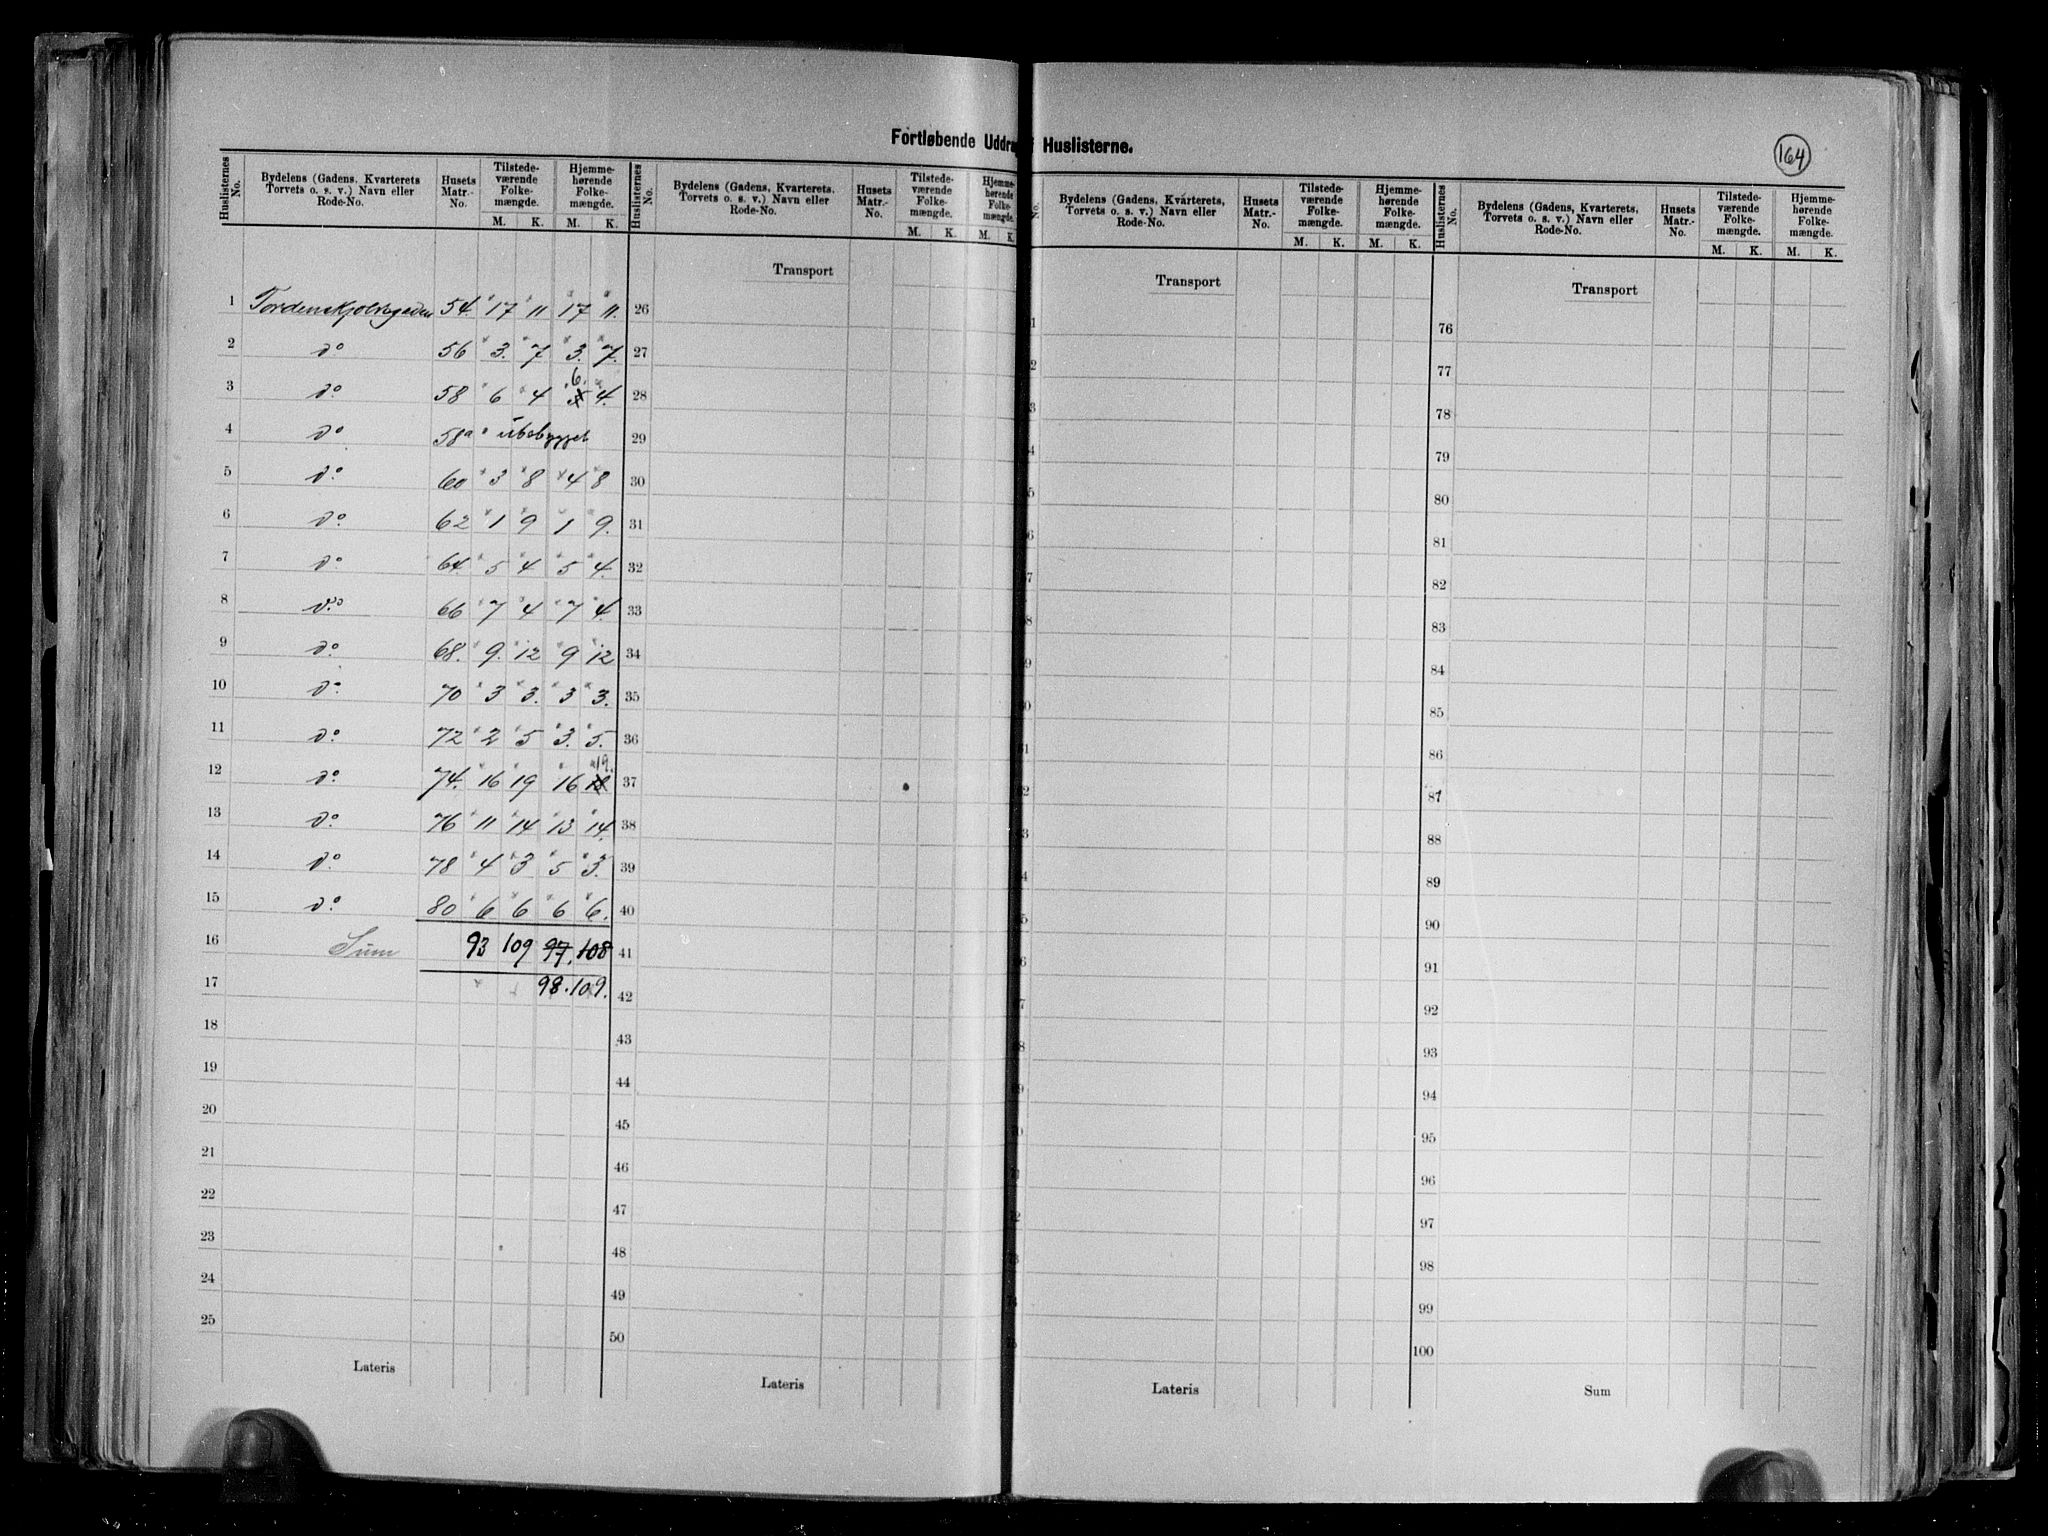 Fortløbende Uddra f Huslisterne.
164
Huslisternes No. Bydelens (Gadens, Kvarterets Torvets o. s. v.) Navn eller Rode-No. Husets Matr.-No. Tilstede-værende Folke-mængde. M. K. Hjemme-hørende Folke-mængde. M. K.
1 Tordenskjoldsgaden 54. 17 11 17 11.
2 do 56 3. 7 3. 7.
3 do 58 6 4 5 6. 4.
4 do 58a ubebygget
5 do 60 3 8 4 8
6 do 62 1 9 1 9.
7 do 64. 5 4 5 4.
8 do 66 7 4 7 4.
9 do 68. 9. 12 9 12
10 do 70 3 3. 3 3.
11 do 72 2 5 3. 5.
12 do 74. 16 19 16 18 19.
13 do 76 11 14 13 14.
14 do 78 4 3 5 3.
15 do 80 6 6 6 6.
16 Sum 93 109 97. 108
17 98. 109.
18
19
20
21
22
23
24
25
Lateris
Huslisternes No. Bydelens (Gadens, Kvarterets, Torvets o. s. v.) Navn eller Rode-No. Husets Matr.-No. Tilstede-værende Folke-mængde. M. K. Hjemme-hørende Folke-mængde. M. K.
Transport
26
27
28
29
30
31
32
33
34
35
36
37
38
39
40
41
42
43
44
45
46
47
48
49
50
Lateris
No. Bydelens (Gadens, Kvarterets, Torvets o. s. v.) Navn eller Rode-No. Husets Matr.-No. Tilstede-værende Folke-mængde. M. K. Hjemme-hørende Folke-mængde. M. K.
Transport
Lateris
Huslisternes No. Bydelens (Gadens, Kvarterets, Torvets o. s. v.) Navn eller Rode-No. Husets Matr.-No. Tilstede-værende Folke-mængde. M. K. Hjemme-hørende Folke-mængde. M. K.
Transport
76
77
78
79
80
81
82
83
84
85
86
87
88
89
90
91
92
93
94
95
96
97
98
99
100
Sum